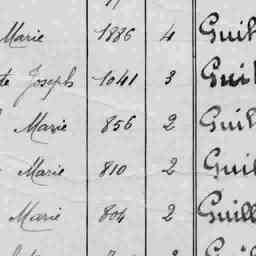 Marie 1886 4 Guil
Joseph 1041 3 Guil
Marie 856 2 Guil
Marie 810 2 Guil
Marie 804 2 Guill